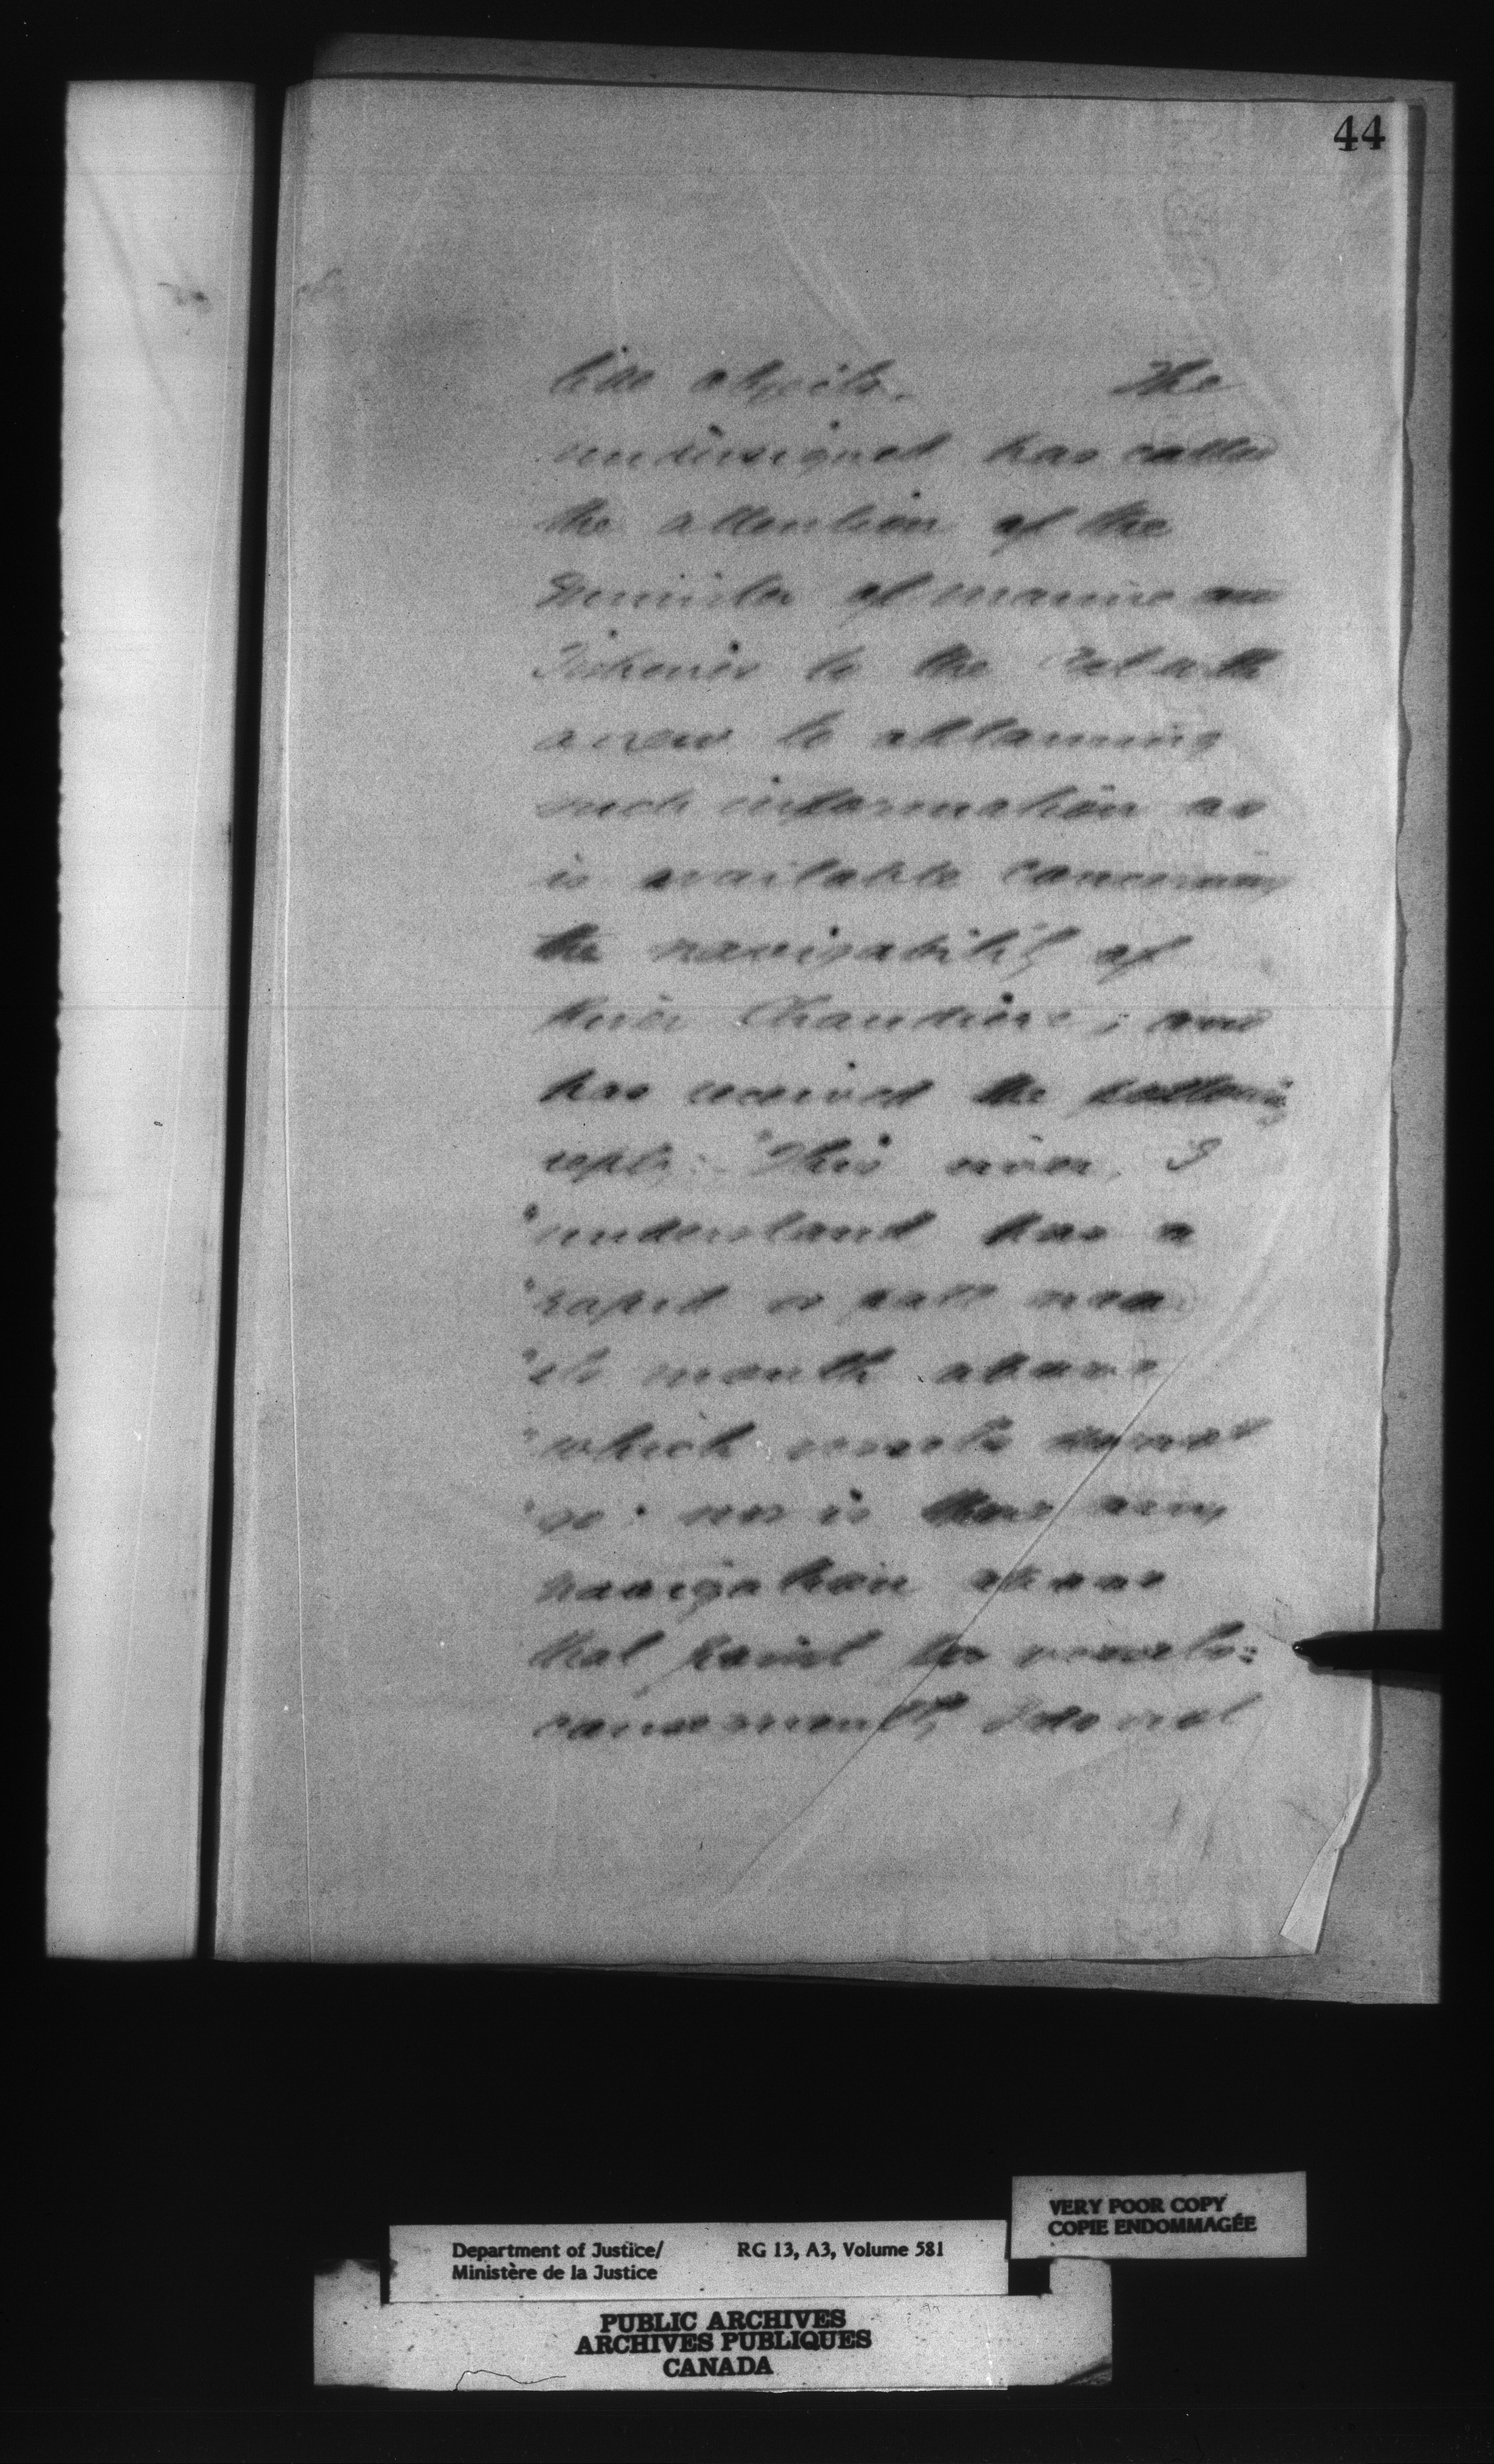 44
objects. The
undersigned has called
the attention of the
Minister of Marine and
Fisheries to the Act with
a view to obtaining
such information as
is available concerning
the navigability of
River Chaudiere; and
has received the following
reply: "This river, I
"understand has a
"rapid or fall near
"its mouth above
"which vessels cannot
"go; nor is there any
navigation above
that point for vessels:
consequently I do not
VERY POOR COPY
COPIE ENDOMMAGÉE
Department of Justice/ RG 13, A3, Volume 581
Ministère de la Justice
PUBLIC ARCHIVES
ARCHIVES PUBLIQUES
CANADA